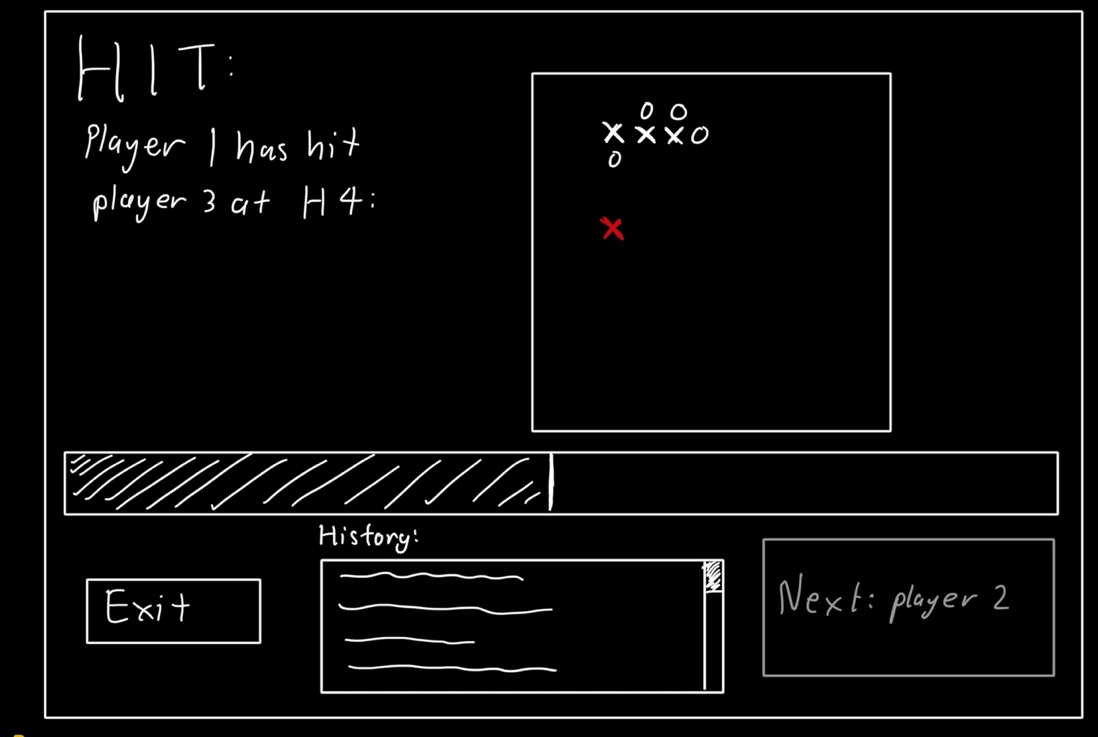 HIT:
Player 1 has hit
player 3 at H4:
O O
X X X O
O
X
History:
Exit
Next: player 2